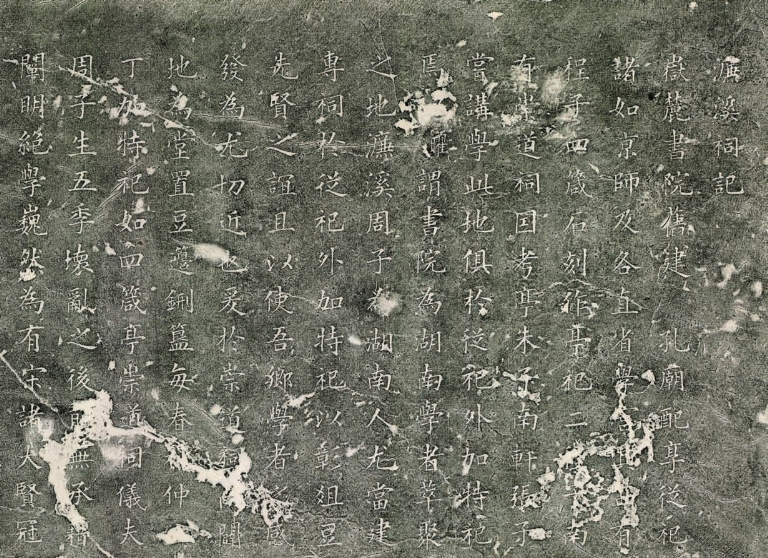 濂溪祠記
嶽麓書院舊建孔廟配享從祀
諸如京師及各直省學有
程子四箴石刻作亭祀二南
有崇道祠因考亭朱子南軒張子
嘗講學此地俱於從祀外加特祀
焉謂書院為湖南學者萃聚
之地濂溪周子為湖南人尤當建
專祠於從祀外加特祀以彰俎豆
先賢之誼且以使吾鄉學者感
發為尤切近也爰於崇道祠闢
地為堂置豆籩鉶簋每春仲
丁加特祀如四箴亭崇道祠儀夫
周子生五季壞亂之後前無承藉
闡明絕學巍然為有宋諸大賢冠